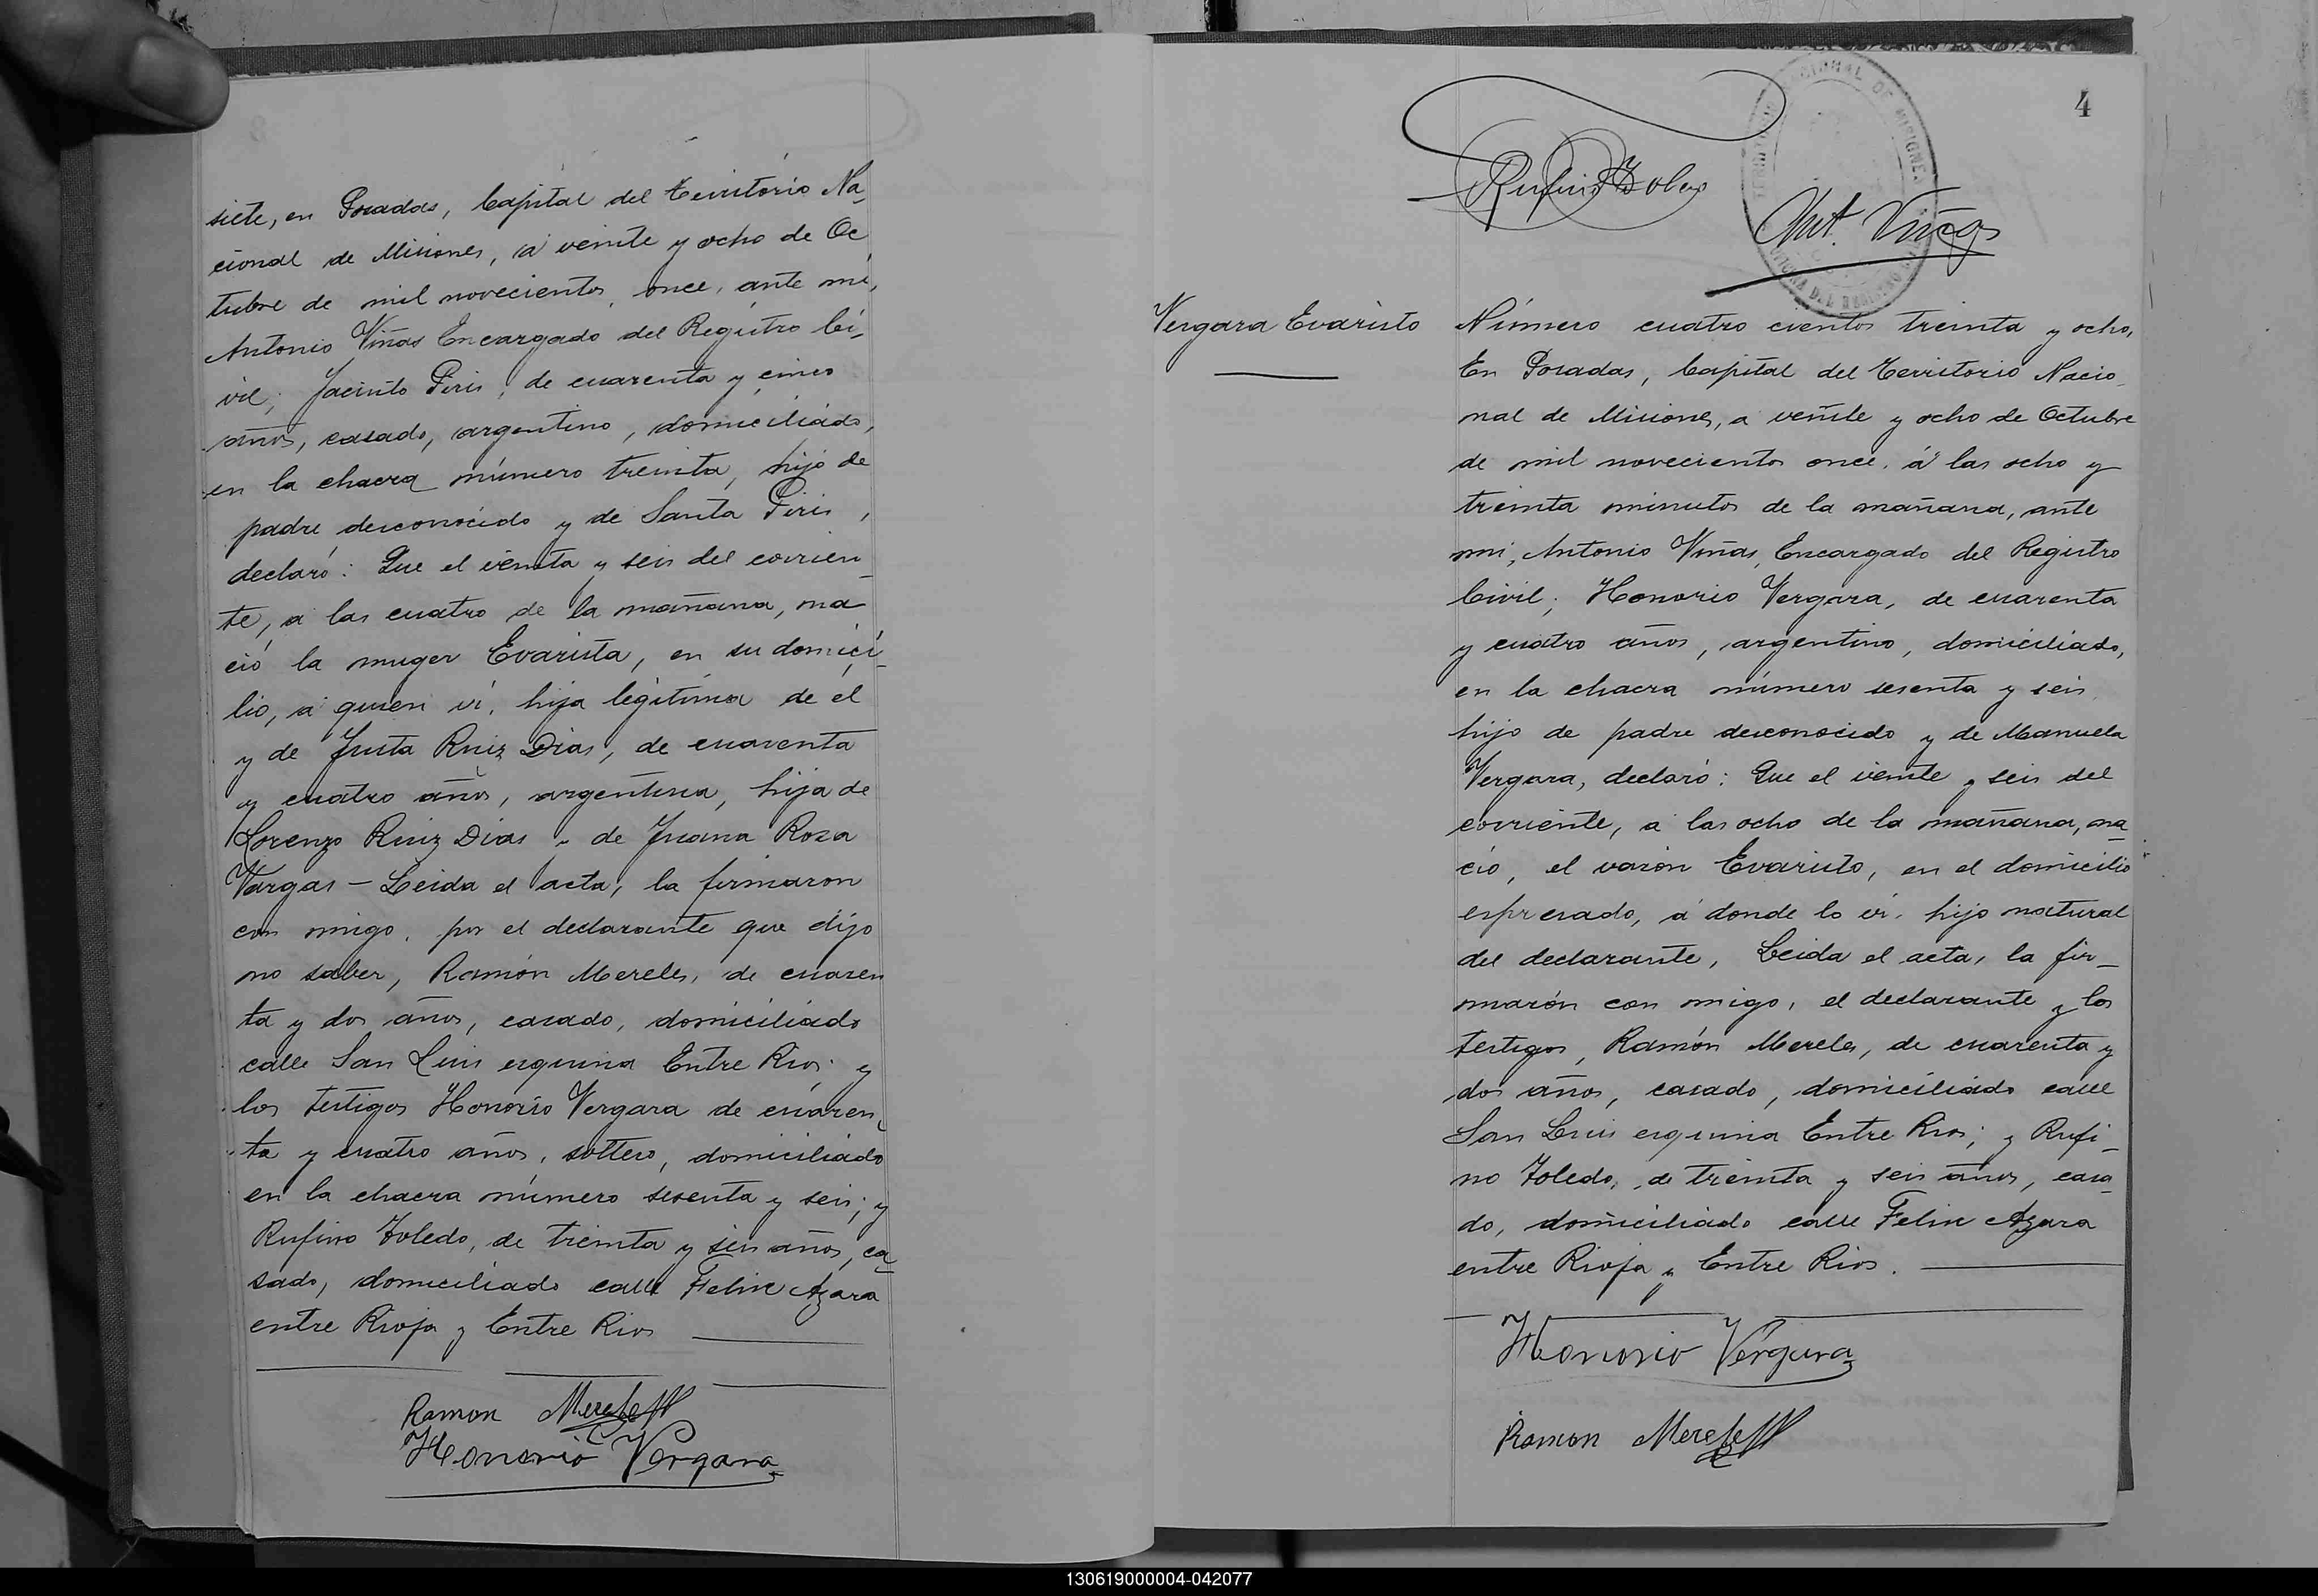 siete, en Posadas, Capital del Territorio Na_
cional de Misiones, á veinte y ocho de Oc
tubre de mil novecientos once, ante mi,
Antonio Viñas Encargado del Registro Ci_
vil; Jacinto Piris, de cuarenta y cinco
años, casado, argentino, domiciliado,
en la chacra número treinta, hijo de
padre desconocido y de Santa Piris,
declaró: Que el veinta y seis del corrien_
te, a las cuatro de la mañana, na
ció la muger Evarista, en su domici_
lio, a quien vi, hija legitima de él
y de Justa Ruiz Dias, de cuarenta
y cuatro años, argentina, hija de
Lorenzo Ruiz Dias y de Juana Roza
Vargas — Leida el acta, la firmaron
con migo, por el declarante que dijo
no saber, Ramón Mereles, de cuaren
ta y dos años, casado, domiciliado
calle San Luis esquina Entre Rios; y
los testigos Honorio Vergara de cuaren_
ta y cuatro años, soltero, domiciliado
en la chacra número sesenta y seis; y
Rufino Toledo, de treinta y seis años, ca_
sado, domiciliado calle Felix Azara
entre Rioja y Entre Rios
Ramon Mereles
Honorio Vergara
4
Rufino Toledo
Ant. Viñas
Vergara Evaristo
Número cuatro cientos treinta y ocho,
En Posadas, Capital del Territorio Nacio_
nal de Misiones, a veinte y ocho de Octubre
de mil novecientos once, á las ocho y
treinta minutos de la mañana, ante
mi, Antonio Viñas, Encargado del Registro
Civil; Honorio Vergara, de cuarenta
y cuatro años, argentino, domiciliado,
en la chacra número sesenta y seis
hijo de padre desconocido y de Manuela
Vergara, declaró: Que el veinte y seis del
corriente, a las ocho de la mañana, na_
ció, el varón Evaristo, en el domicilio
espresado, á donde lo vi, hijo natural
del declarante, Leida el acta, la fir_
marón con migo, el declarante y los
testigos, Ramón Mereles, de cuarenta y
dos años, casado, domiciliado calle
San Luis esquina Entre Rios; y Rufi_
no Toledo, de treinta y seis años, casa_
do, domiciliado calle Felix Azara
entre Rioja y Entre Rios.
Honorio Vergara
Ramon Mereles
130619000004-042077